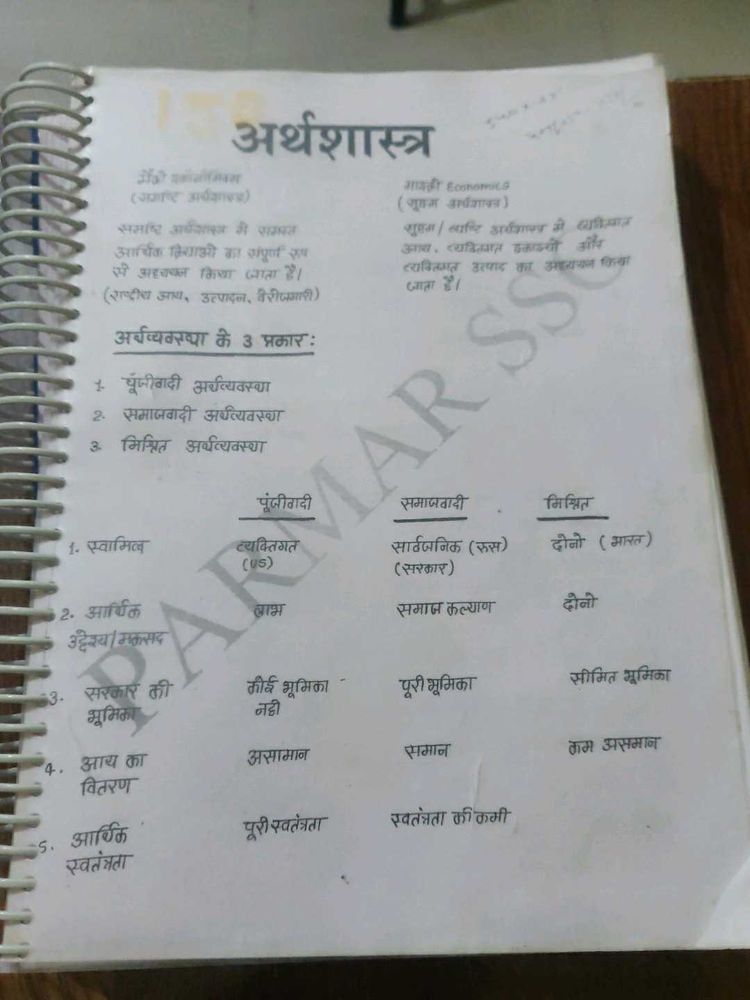 अर्थशास्त्र
मैक्रो इकोनोमिक्स
(समष्टि अर्थशास्त्र)
समष्टि अर्थशास्त्र में समस्त
आर्थिक क्रियाओं का संपूर्ण रूप
से अध्ययन किया जाता है।
(राष्ट्रीय आय, उत्पादन, बेरोजगारी)
माइक्रो Economics
(सूक्ष्म अर्थशास्त्र)
सूक्ष्म / व्यष्टि अर्थशास्त्र में व्यक्तिगत
आय, व्यक्तिगत इकाइयों और
व्यक्तिगत उत्पाद का अध्ययन किया
जाता है।
अर्थव्यवस्था के 3 प्रकार:
1. पूंजीवादी अर्थव्यवस्था
2. समाजवादी अर्थव्यवस्था
3. मिश्रित अर्थव्यवस्था
पूंजीवादी समाजवादी मिश्रित
1. स्वामित्व व्यक्तिगत सार्वजनिक (रूस) दोनो (भारत)
(US) (सरकार)
2. आर्थिक लाभ समाज कल्याण दोनो
उद्देश्य/मकसद
3. सरकार की कोई भूमिका पूरी भूमिका सीमित भूमिका
भूमिका नही
4. आय का असामान समान कम असमान
वितरण
5. आर्थिक पूरी स्वतंत्रता स्वतंत्रता की कमी
स्वतंत्रता
PARMAR SSC